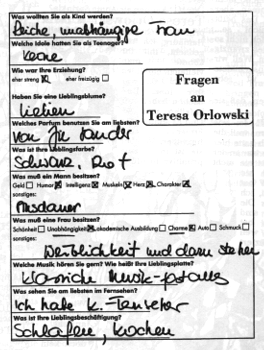 Was wollten Sie als Kind werden?
Reiche, unabhängige Frau
Welche Idole hatten Sie als Teenager?
Keine
Wie war Ihre Erziehung?
eher streng ☒ eher freizügig ☐
Fragen
an
Teresa Orlowski
Haben Sie eine Lieblingsblume?
Lielien
Welches Parfum benutzen Sie am liebsten?
von Jil Sander
Was ist Ihre Lieblingsfarbe?
Schwarz, Rot
Was muß ein Mann besitzen?
Geld ☐ Humor ☒ Intelligenz ☒ Muskeln ☒ Herz ☒ Charakter ☒
sonstiges:
Ausdauer
Was muß eine Frau besitzen?
Schönheit ☐ Unabhängigkeit ☒ akademische Ausbildung ☐ Charme ☒ Auto ☐ Schmuck ☐
sonstiges:
Weiblichkeit und dazu stehen
Welche Musik hören Sie gern? Wie heißt Ihre Lieblingsplatte?
Klassische Musik
Was sehen Sie am liebsten im Fernsehen?
Ich habe K. Fernseher
Was ist Ihre Lieblingsbeschäftigung?
Schlafen, Kochen